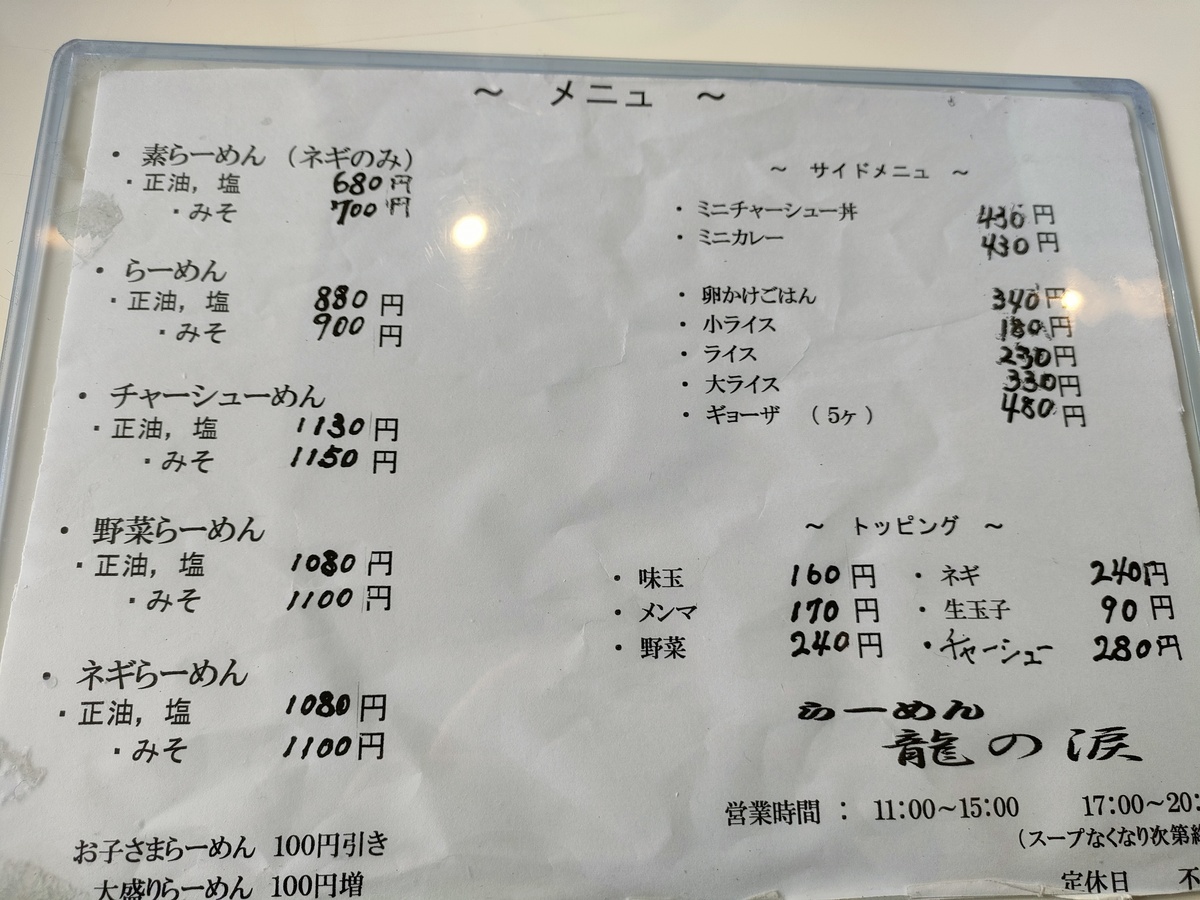 ～ メニュー ～
・素らーめん （ネギのみ）
・正油, 塩 680円
・みそ 700円
・らーめん
・正油, 塩 880円
・みそ 900円
・チャーシューめん
・正油, 塩 1130円
・みそ 1150円
・野菜らーめん
・正油, 塩 1080円
・みそ 1100円
・ネギらーめん
・正油, 塩 1080円
・みそ 1100円
お子さまらーめん 100円引き
大盛りらーめん 100円増
～ サイドメニュー ～
・ミニチャーシュー丼 430円
・ミニカレー 430円
・卵かけごはん 340円
・小ライス 180円
・ライス 230円
・大ライス 330円
・ギョーザ （5ヶ） 480円
～ トッピング ～
・味玉 160円 ・ネギ 240円
・メンマ 170円 ・生玉子 90円
・野菜 240円 ・チャーシュー 280円
らーめん
龍の涙
営業時間 : 11:00～15:00 17:00～20:
（スープなくなり次第終
定休日 不